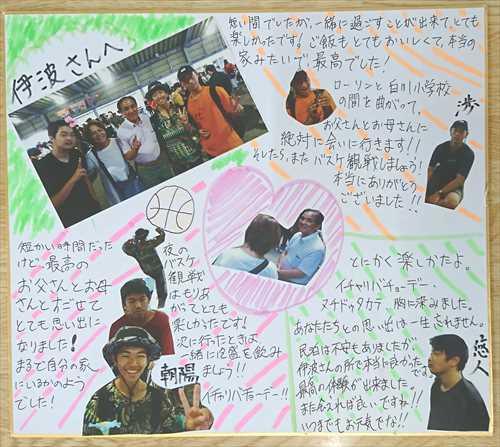 伊波さんへ
短い間でしたが、一緒に過ごすことが出来て、とても
楽しかったです。ご飯もとてもおいしくて、本当の
家みたいで、最高でした!
ローソンと白川小学校
の間を曲がって、
お父さんとお母さんに
絶対に会いに行きます!!
そしたら、またバスケ観戦しましょう!
本当にありがとう
ございました!!
渉
短かい時間だった
けど、最高の
お父さんとお母
さんとだせて
とても思い出に
なりました!
まるで自分の家
にいるかのよう
でした!
夜の
バスケ
観戦
はもりあ
がってとても
楽しかったです!
次に行ったときは
一緒に泡盛を飲み
ましょう!!
イチャリバチョーデー!!
朝陽
とにかく楽しかったよ。
イチャリバチョーデー、
ヌチドゥタカラ 胸に深みました。
あなたたちとの思い出は一生忘れません。
民泊は不安もありましたが、
伊波さんの所で本当に良かった
です。
最高の体験が出来ました。
また会えれば良いですね!!
いつまでもお元気でな!!
悠人